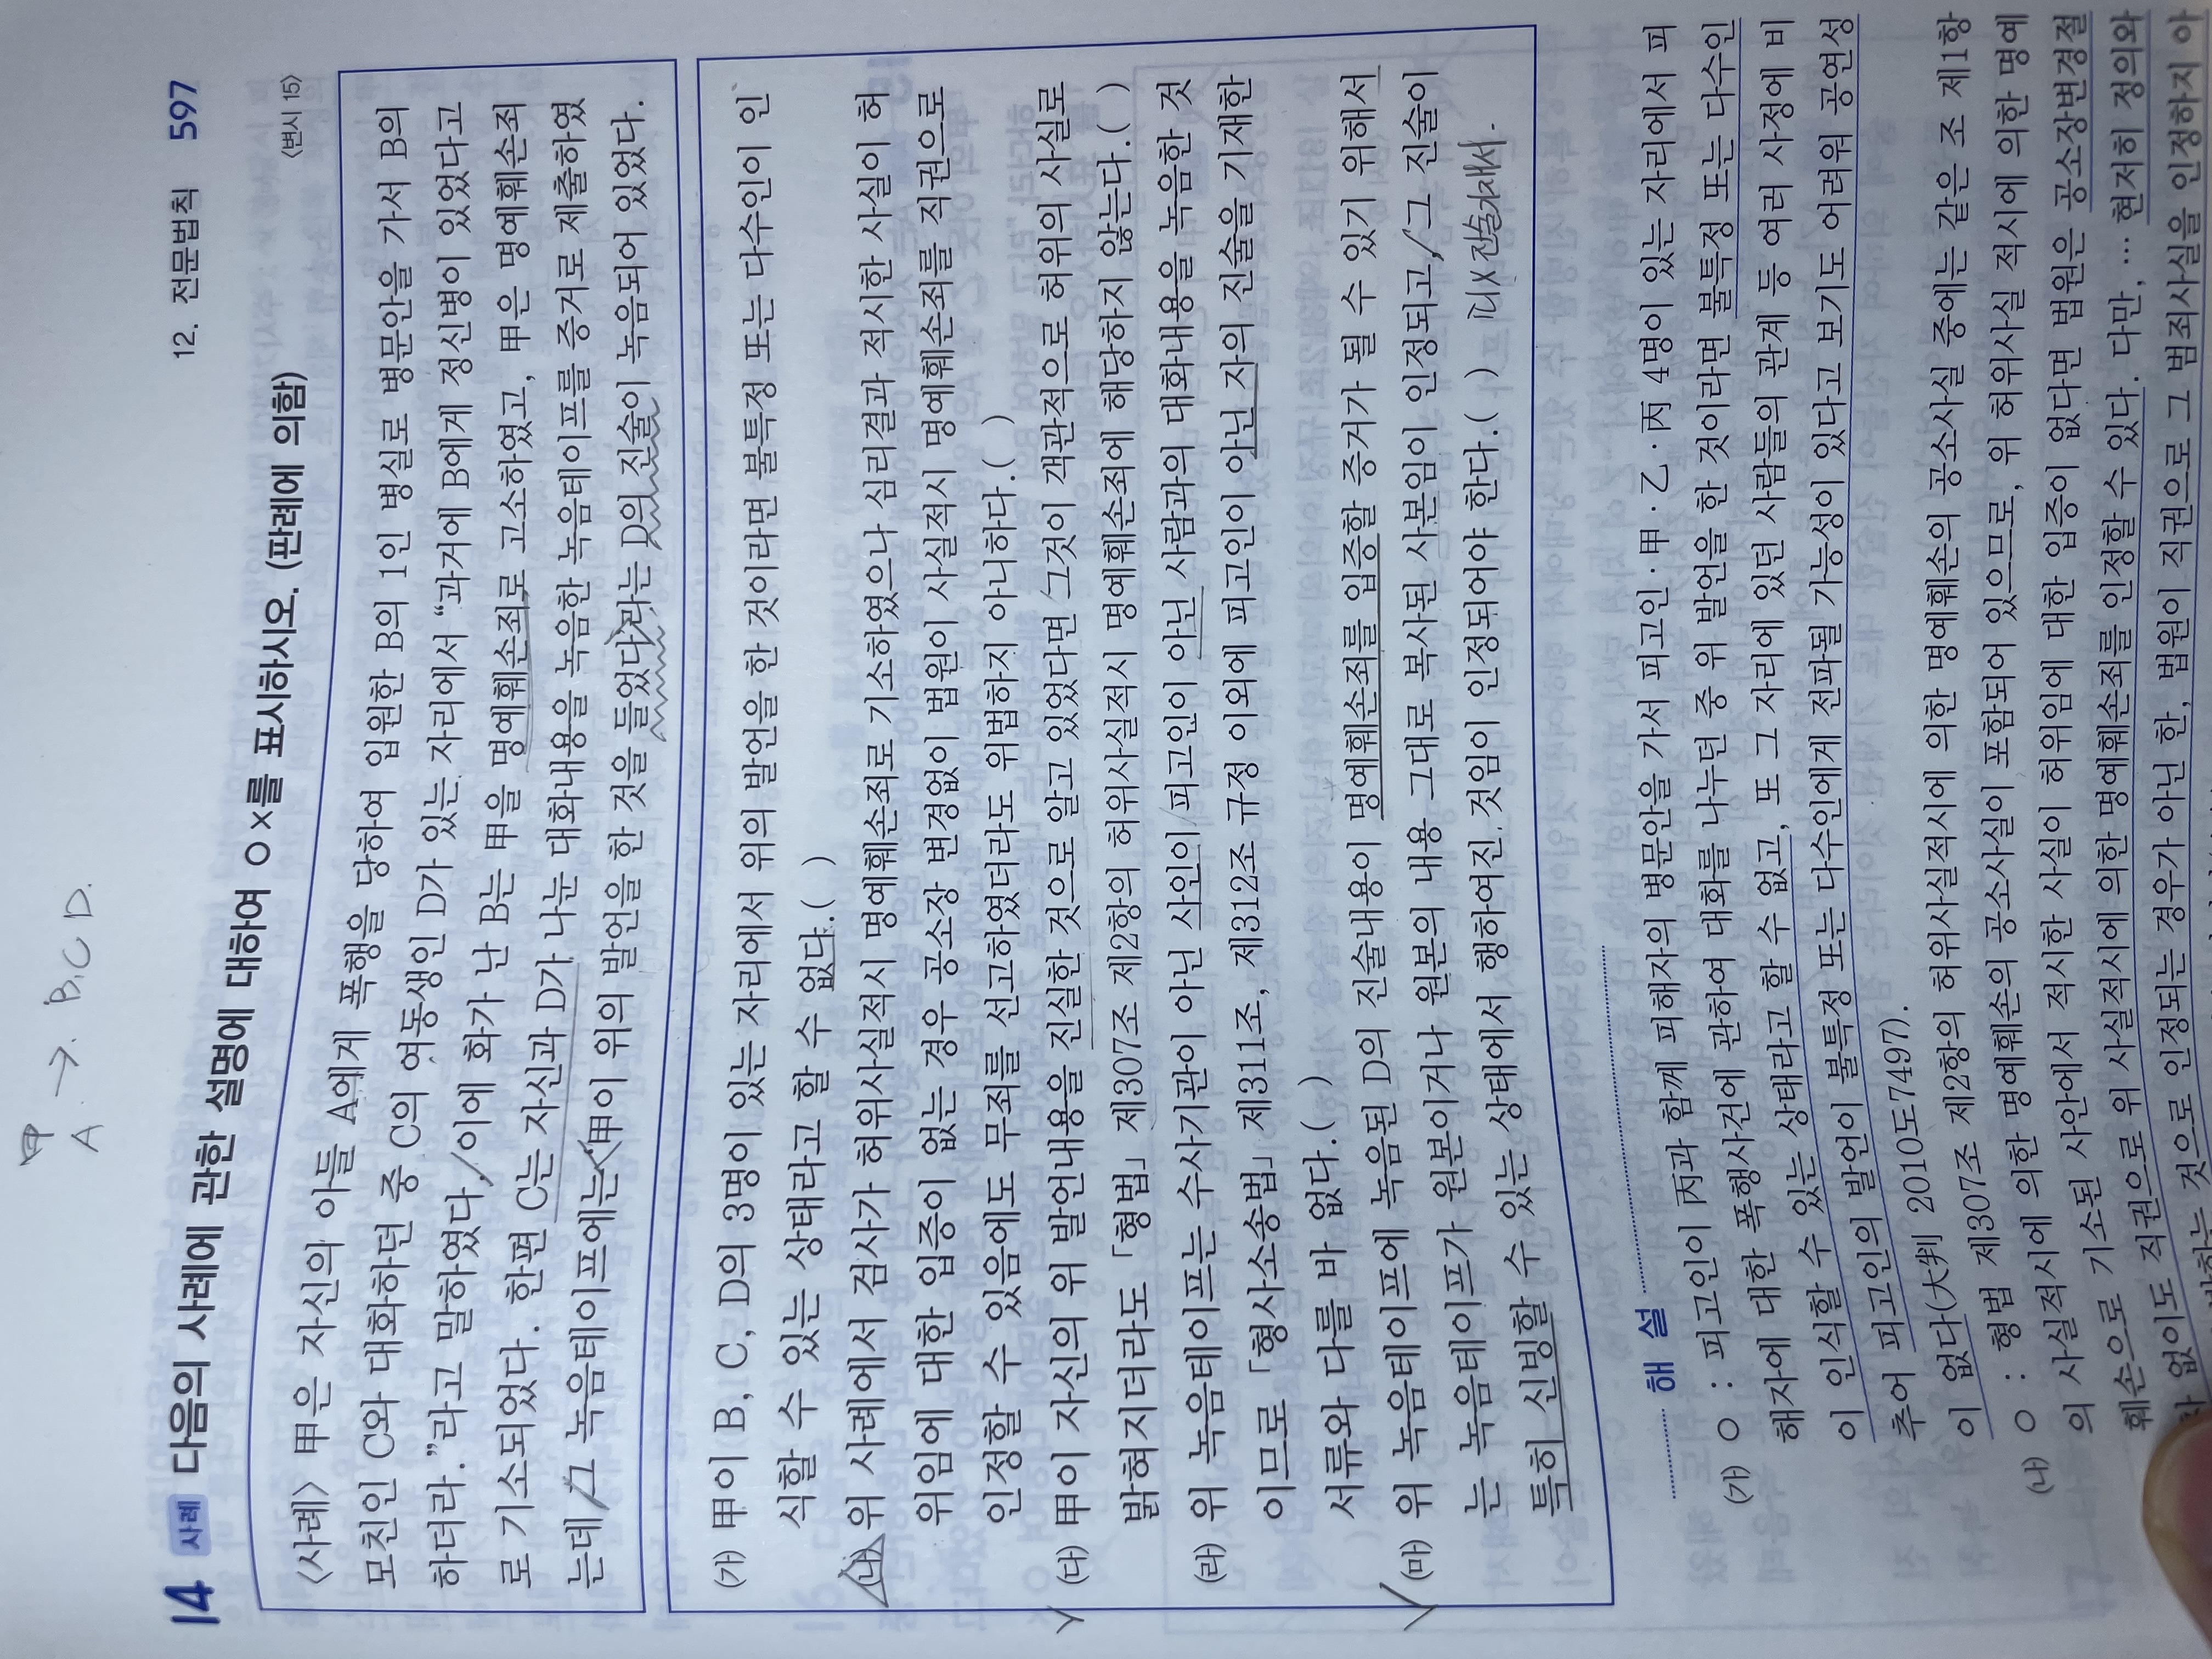 甲
A → B, C D.
12. 전문법칙 597
14 사례 다음의 사례에 관한 설명에 대하여 ○×를 표시하시오. (판례에 의함)
<변시 15>
<사례> 甲은 자신의 아들 A에게 폭행을 당하여 입원한 B의 1인 병실로 병문안을 가서 B의
모친인 C와 대화하던 중 C의 여동생인 D가 있는 자리에서 “과거에 B에게 정신병이 있었다고
하더라.”라고 말하였다./이에 화가 난 B는 甲을 명예훼손죄로 고소하였고, 甲은 명예훼손죄
로 기소되었다. 한편 C는 자신과 D가 나눈 대화내용을 녹음한 녹음테이프를 증거로 제출하였
는데/그 녹음테이프에는<甲이 위의 발언을 한 것을 들었다>라는 D의 진술이 녹음되어 있었다.
(가) 甲이 B, C, D의 3명이 있는 자리에서 위의 발언을 한 것이라면 불특정 또는 다수인이 인
식할 수 있는 상태라고 할 수 없다.( )
(나) 위 사례에서 검사가 허위사실적시 명예훼손죄로 기소하였으나 심리결과 적시한 사실이 허
위임에 대한 입증이 없는 경우 공소장 변경없이 법원이 사실적시 명예훼손죄를 직권으로
인정할 수 있음에도 무죄를 선고하였더라도 위법하지 아니하다.( )
(다) 甲이 자신의 위 발언내용을 진실한 것으로 알고 있었다면/그것이 객관적으로 허위의 사실로
밝혀지더라도 「형법」 제307조 제2항의 허위사실적시 명예훼손죄에 해당하지 않는다.( )
(라) 위 녹음테이프는 수사기관이 아닌 사인이/피고인이 아닌 사람과의 대화내용을 녹음한 것
이므로 「형사소송법」 제311조, 제312조 규정 이외에 피고인이 아닌 자의 진술을 기재한
서류와 다를 바 없다.( )
(마) 위 녹음테이프에 녹음된 D의 진술내용이 명예훼손죄를 입증할 증거가 될 수 있기 위해서
는 녹음테이프가 원본이거나 원본의 내용 그대로 복사된 사본임이 인정되고,/그 진술이
특히 신빙할 수 있는 상태에서 행하여진 것임이 인정되어야 한다.( )
해 설
(가) ○ : 피고인이 丙과 함께 피해자의 병문안을 가서 피고인·甲·乙·丙 4명이 있는 자리에서 피
해자에 대한 폭행사건에 관하여 대화를 나누던 중 위 발언을 한 것이라면 불특정 또는 다수인
이 인식할 수 있는 상태라고 할 수 없고, 또 그 자리에 있던 사람들의 관계 등 여러 사정에 비
추어 피고인의 발언이 불특정 또는 다수인에게 전파될 가능성이 있다고 보기도 어려워 공연성
이 없다(大判 2010도7497).
(나) ○ : 형법 제307조 제2항의 허위사실적시에 의한 명예훼손의 공소사실 중에는 같은 조 제1항
의 사실적시에 의한 명예훼손의 공소사실이 포함되어 있으므로, 위 허위사실 적시에 의한 명예
훼손으로 기소된 사안에서 적시한 사실이 허위임에 대한 입증이 없다면 법원은 공소장변경절
차 없이도 직권으로 위 사실적시에 의한 명예훼손죄를 인정할 수 있다. 다만, … 현저히 정의와
것으로 인정되는 경우가 아닌 한, 법원이 직권으로 그 범죄사실을 인정하지 아